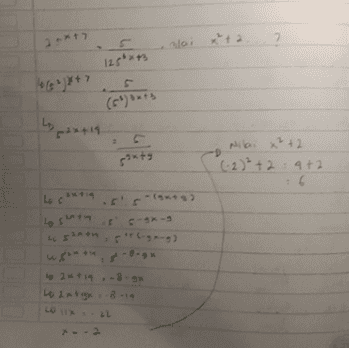 25^x+7 = 5 / 125^3x+3 . nilai x²+2 ?
↳ (5²)^x+7 = 5 / (5³)^3x+3
↳ 5^2x+14 = 5 / 5^9x+9
↳ 5^2x+14 = 5¹ . 5^-(9x+9)
↳ 5^2x+14 = 5¹ 5^-9x-9
↳ 5^2x+14 = 5^1+(-9x-9)
↳ 5^2x+14 = 5^-8-9x
↳ 2x+14 = -8-9x
↳ 2x+9x = -8-14
↳ 11x = -22
x = -2
→ Nilai x²+2
(-2)²+2 = 4+2
= 6